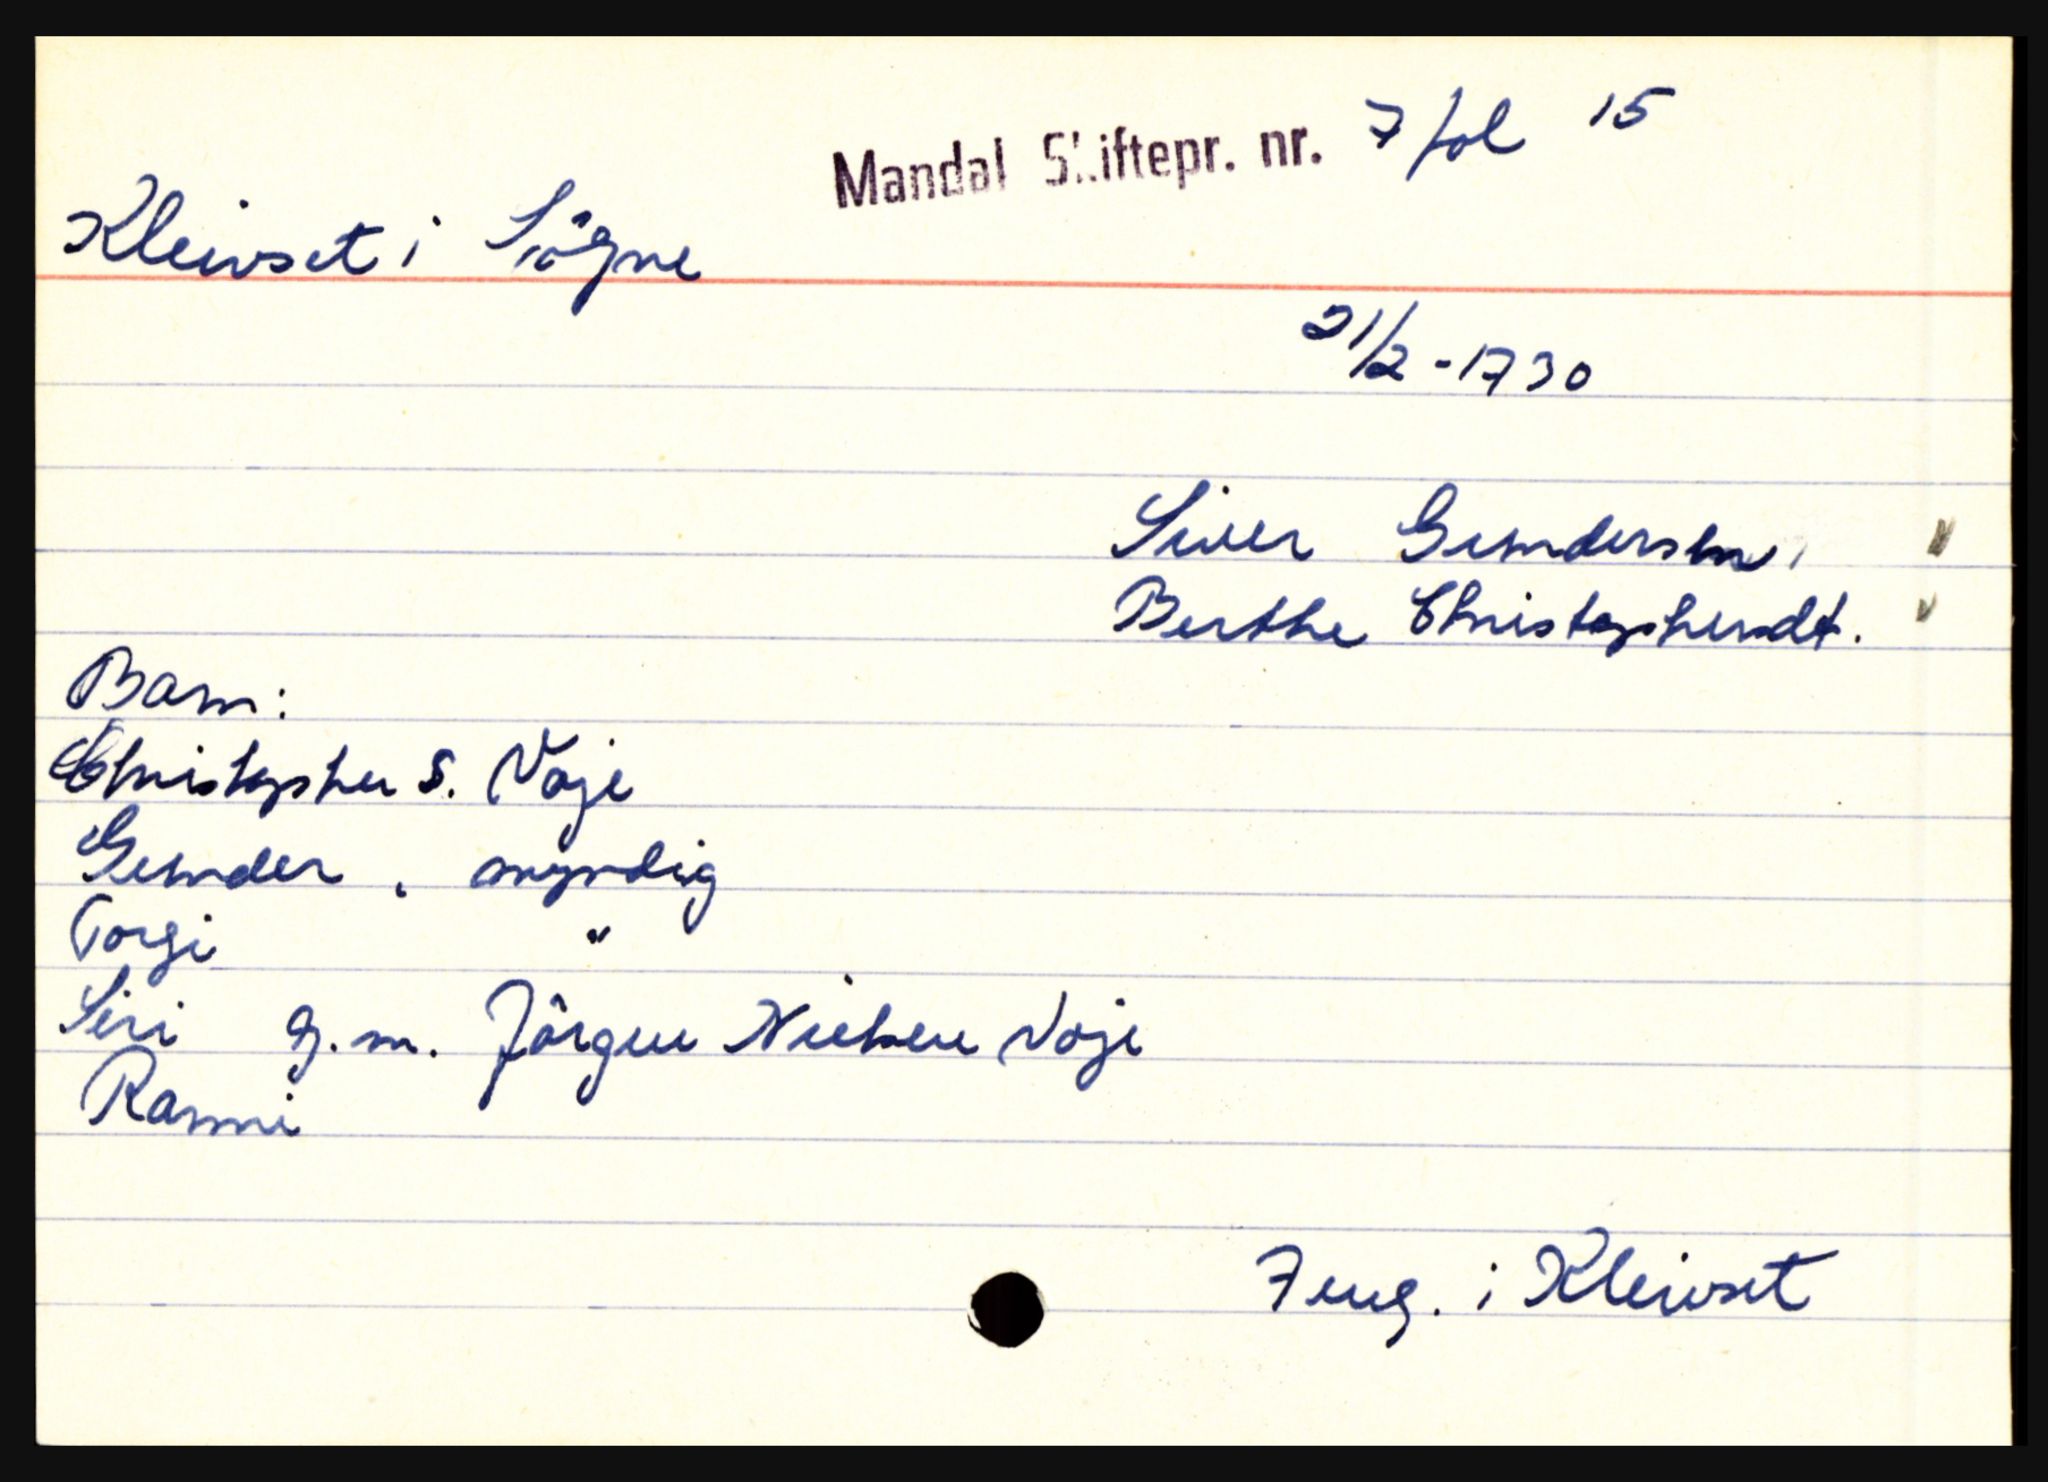 Mandal Skiftepr. nr. 7 fol 15
Kleivset i Sögne
21/2 - 1730
Siver Gundersen,
Berthe Christophersdt.
Barn:
Christopher S. Voje
Gunder, myndig
Torgi "
Siri g.m. Jörgen Nielsen Voje
Ranni
Feug. i Kleivset